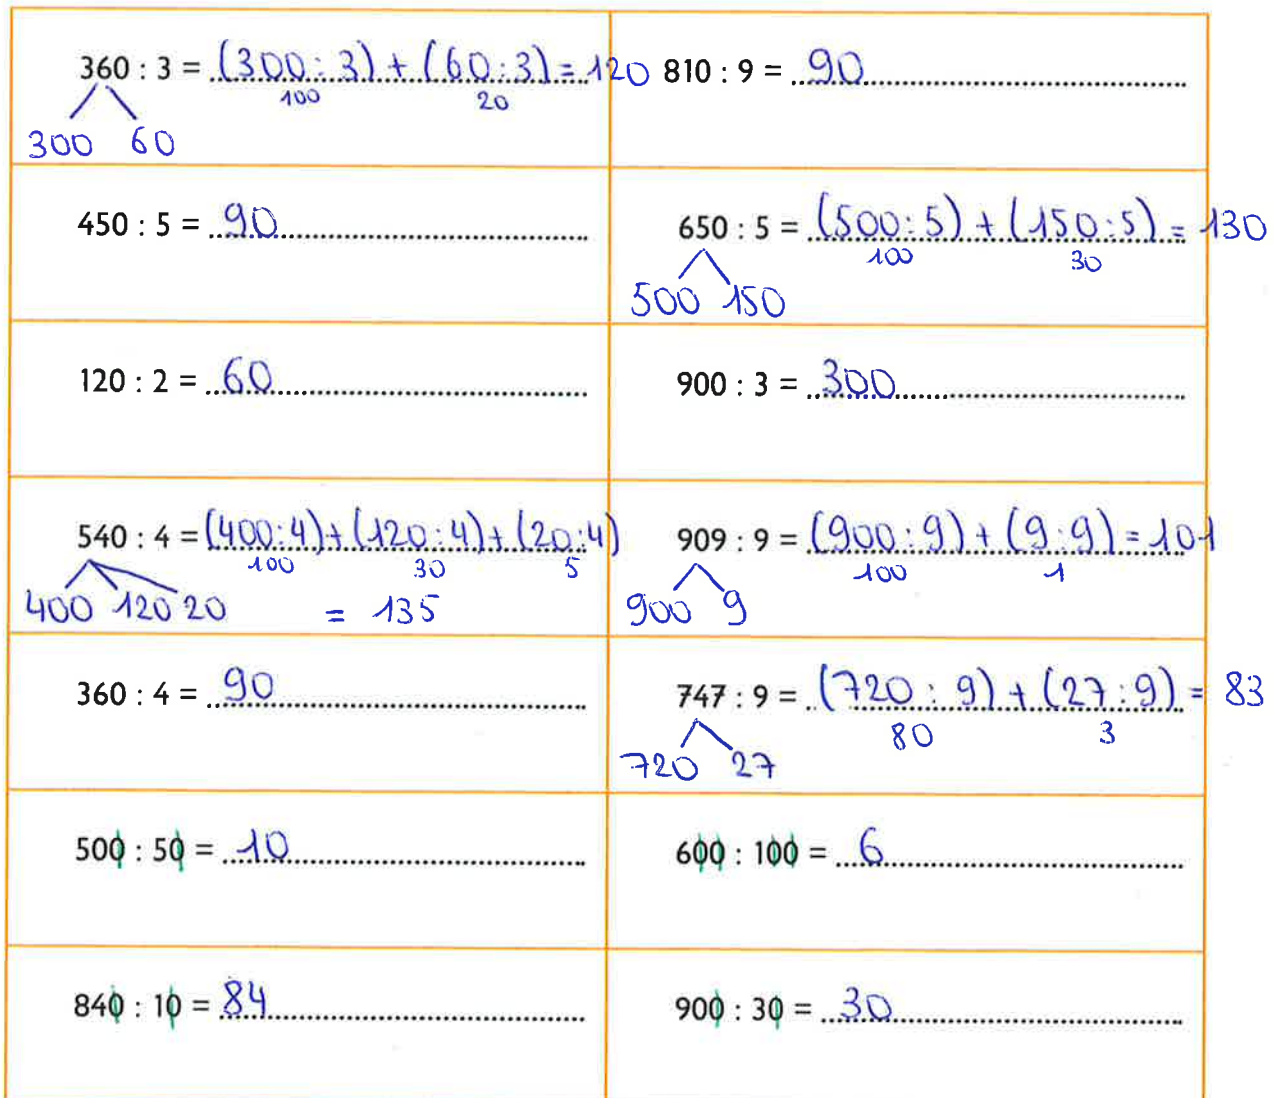 360 : 3 = (300 : 3) + (60 : 3) = 120
100 20
300 60
810 : 9 = 90
450 : 5 = 90
650 : 5 = (500 : 5) + (150 : 5) = 130
100 30
500 150
120 : 2 = 60
900 : 3 = 300
540 : 4 = (400 : 4) + (120 : 4) + (20 : 4)
100 30 5
400 120 20 = 135
909 : 9 = (900 : 9) + (9 : 9) = 101
100 1
900 9
360 : 4 = 90
747 : 9 = (720 : 9) + (27 : 9) = 83
80 3
720 27
500 : 50 = 10
600 : 100 = 6
840 : 10 = 84
900 : 30 = 30